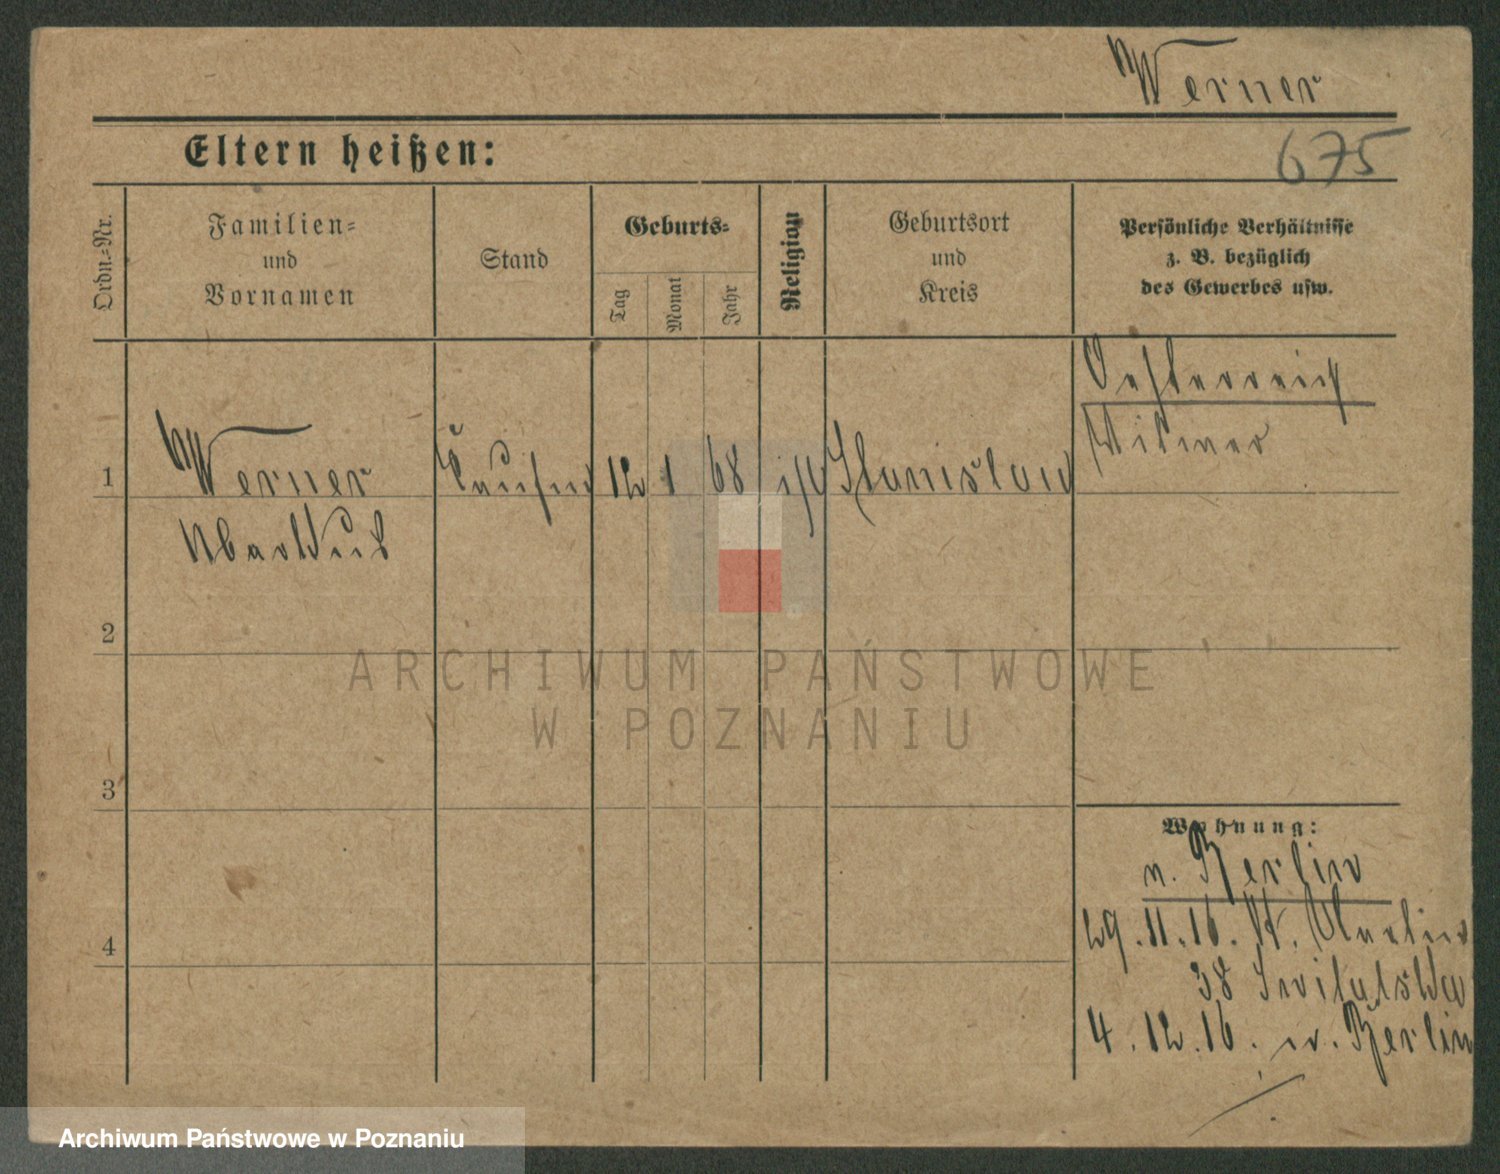 Werner
Eltern heißen:
675
Ordn.=Nr.
Familien=
und
Vornamen
Stand
Geburts=
Tag
Monat
Jahr
Religion
Geburtsort
und
Kreis
Persönliche Verhältnisse
z. B. bezüglich
des Gewerbes usw.
Oesterreich
1
Werner
12 1 68 isr Stanislau
Witwer
2
ARCHIWUM PAŃSTWOWE
W POZNANIU
3
Wohnung:
n. Berlin
29.11.16. St. Martin
38
4
4.12.16. n. Berlin
Archiwum Państwowe w Poznaniu